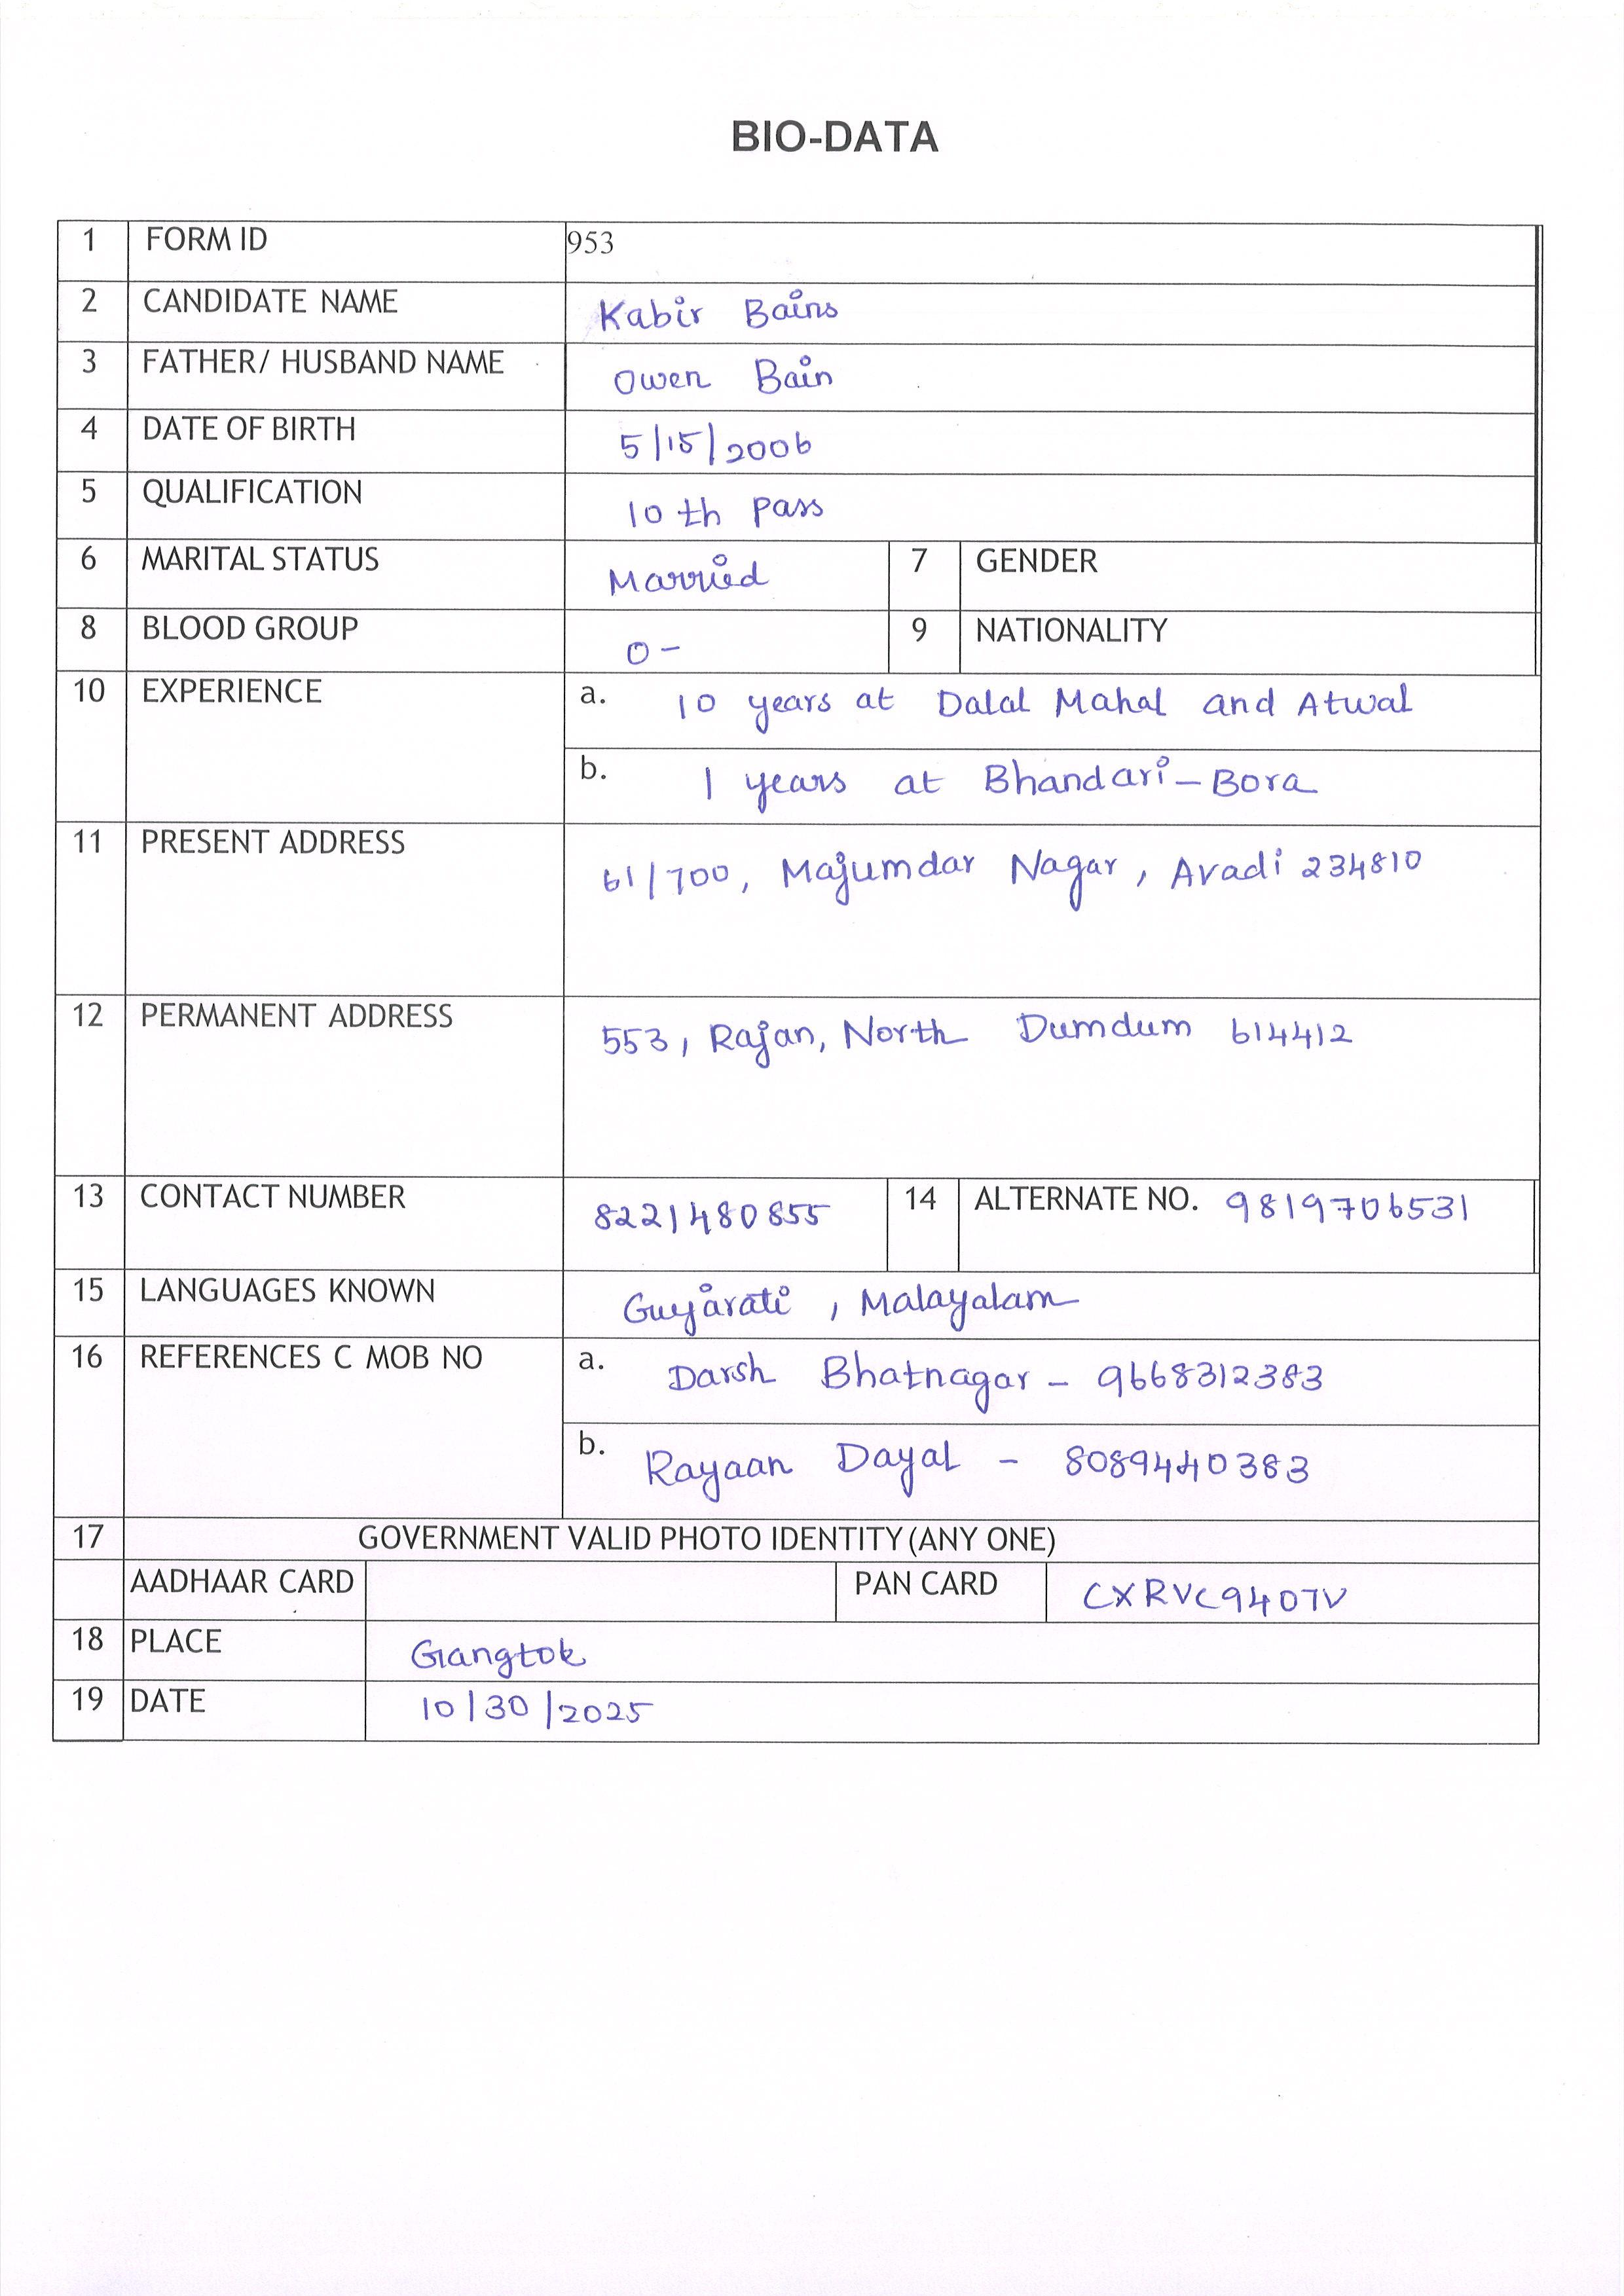 BIO-DATA
1 FORM ID 953
2 CANDIDATE NAME Kabir Bains
3 FATHER/ HUSBAND NAME Owen Bain
4 DATE OF BIRTH 5/15/2006
5 QUALIFICATION 10 th pass
6 MARITAL STATUS Married 7 GENDER
8 BLOOD GROUP O- 9 NATIONALITY
10 EXPERIENCE a. 10 years at Dalal Mahal and Atwal
b. 1 years at Bhandari-Bora
11 PRESENT ADDRESS 61/700, Majumdar Nagar, Avadi 234810
12 PERMANENT ADDRESS 553, Rajan, North Dumdum 614412
13 CONTACT NUMBER 8221480855 14 ALTERNATE NO. 9819706531
15 LANGUAGES KNOWN Gujarati, Malayalam
16 REFERENCES C MOB NO a. Darsh Bhatnagar - 9668312383
b. Rayaan Dayal - 8089440383
17 GOVERNMENT VALID PHOTO IDENTITY (ANY ONE)
AADHAAR CARD PAN CARD CXRVC9407V
18 PLACE Gangtok
19 DATE 10/30/2025